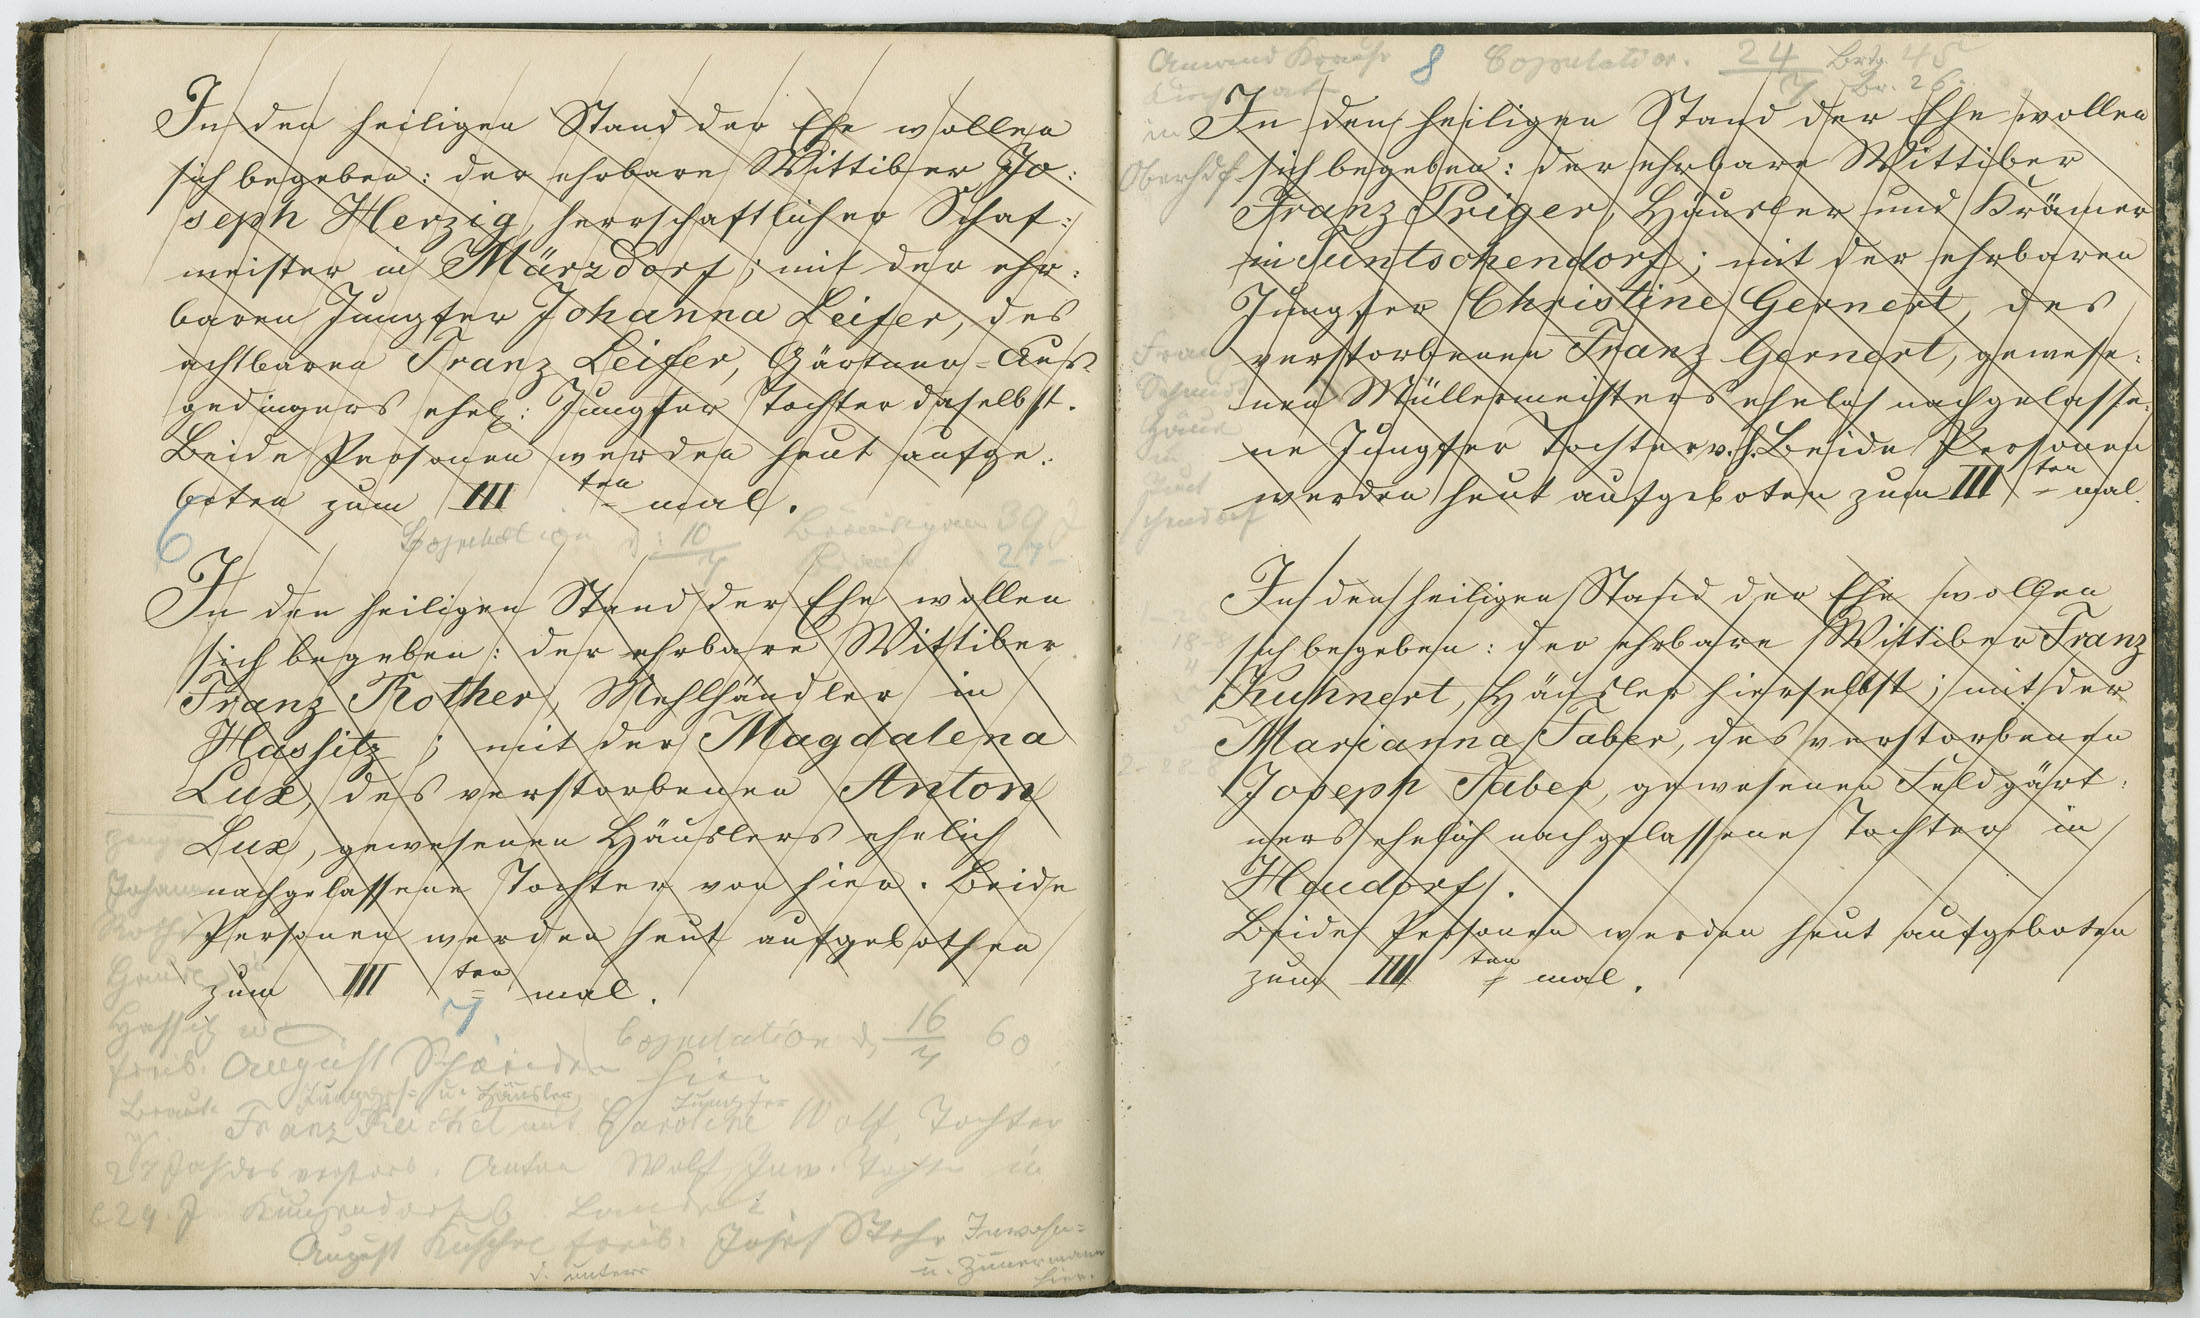 In den heiligen Stand der Ehe wollen
sich begeben: der ehrbare Wittiber Jo:
seph Herzig, herrschaftlicher Schaf:
meister in Märzdorf; mit der ehr:
baren Jungfer Johanna Leifer, des
achtbaren Franz Leifer, Gärtner-Aus:
gedingers ehel: Jungfer Tochter daselbst.
Beide Personen werden heut aufge:
boten zum III ten mal.
6 Copulation d. 10/7 Bräutigam 39 J
Braut 27
In den heiligen Stand der Ehe wollen
sich begeben: der ehrbare Wittiber
Franz Rother, Mehlhändler in
Hassitz; mit der Magdalena
Lux, des verstorbenen Anton
Lux, gewesenen Häuslers ehelich
nachgelassene Tochter von hier. Beide
Personen werden heut aufgebothen
zum III ten mal.
Johann
Hassitz
7 Copulation d. 16/7 60
August
hier
Braut
u. Häusler Jungfer
Franz mit Caroline Wolf, Tochter
27 Jah des verstorb. Anton Wolf, Inw. Tochter in
24 J Kunzendorf b. Landeck
August Josef Inwohn=
u. Zimmermann
hier.
8 Copulation. 24/7 Brtg. 45
Br. 26
in
Oberhdf
In den heiligen Stand der Ehe wollen
sich begeben: der ehrbare Wittiber
Franz Priger, Häusler und Krämer
in Tuntschendorf; mit der ehrbaren
Jungfer Christine Gernert, des
verstorbenen Franz Gernert, gewese:
nen Müllermeisters ehelich nachgelasse:
ne Jungfer Tochter v. h. Beide Personen
werden heut aufgeboten zum III ten mal.
Franz
In den heiligen Stand der Ehe wollen
sich begeben: der ehrbare Wittiber Franz
Kuhnert, Häusler hierselbst; mit der
Marianna Taber, des verstorbenen
Joseph Taber, gewesenen Feldgärt:
ners ehelich nachgelassene Tochter in
Heudorf.
Beide Personen werden heut aufgeboten
zum III ten mal.